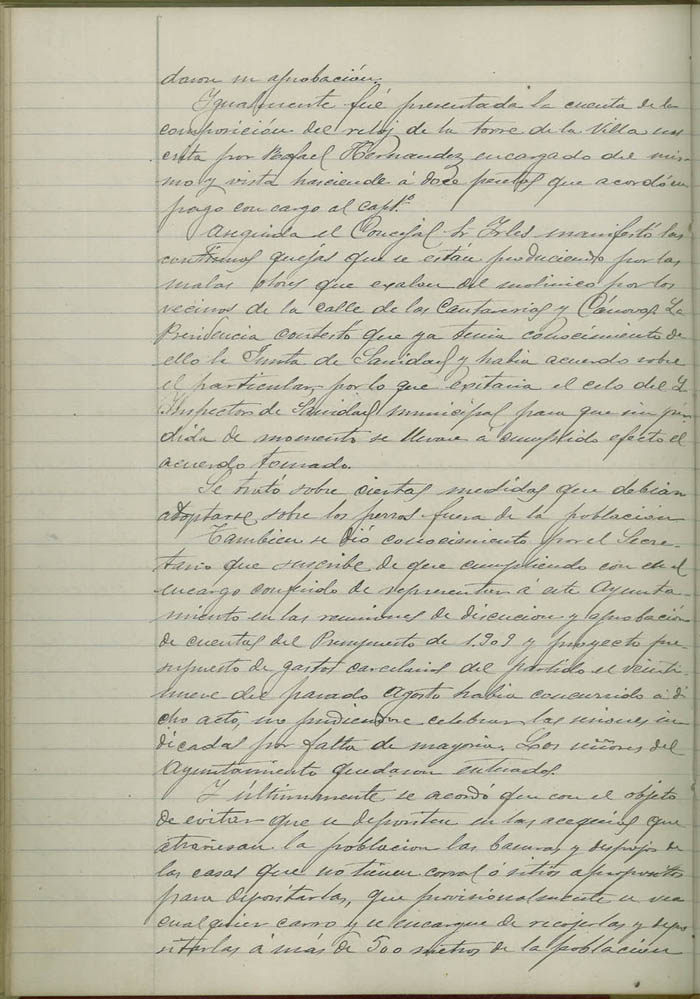 daron su aprobación.
Igualmente fué presentada la cuenta de la
composición del reloj de la torre de la Villa sus
crita por Rafael Hernandez encargado del mis
mo y vista hasciende á doce pesetas que acordó su
pago con cargo al capt.º
Anseguida el Concejal Sr Irles manifestó las
continuas quejas que se están produciendo por los
malos olores que exalan del molinico por los
vecinos de la calle de las Cantarerias y Cánovas La
Presidencia contestó que ya tenia conocimiento de
ello la Junta de Sanidad y habia acuerdo sobre
el particular, por lo que exitaria el celo del S.
Inspector de Sanidad municipal para que sin per
dida de momento se llevase á cumplido efecto el
acuerdo tomado.
Se trató sobre ciertas medidas que debian
adoptarse sobre los perros fuera de la población
Tambien se dió conocimiento por el Secre-
tario que suscribe de que cumpliendo con el
encargo conferido de representar á este Ayunta-
miento en las reuniones de discucion y aprobación
de cuentas del Presupuesto de 1.909 y proyecto pre-
supuesto de gastos carcelarios del partido el veinti-
nueve del pasado Agosto habia concurrido á di
cho acto, no pudiendose celebrar las uniones in
dicadas por falta de mayoria. Los señores del
Ayuntamiento quedaron enterados.
Y últimamente se acordó que con el objeto
de evitar que se depositen en las acequias que
atraviesan la poblacion las basuras y despojos de
las casas que no tienen corral ó sitios apropositos
para depositarlas, que provisionalmente se vea
cualquier carro y se encargue de recojerlas y depo
sitarlas á más de 500 metros de la población